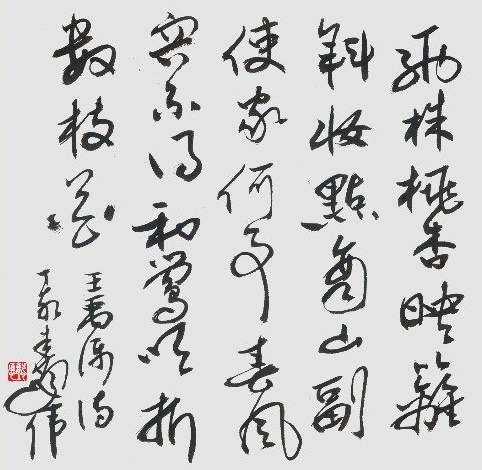 兩株桃杏映籬
斜妝點商山副
使家何事春風
容不得和鶯吹折
數枝花
王禹偁詩
丁亥